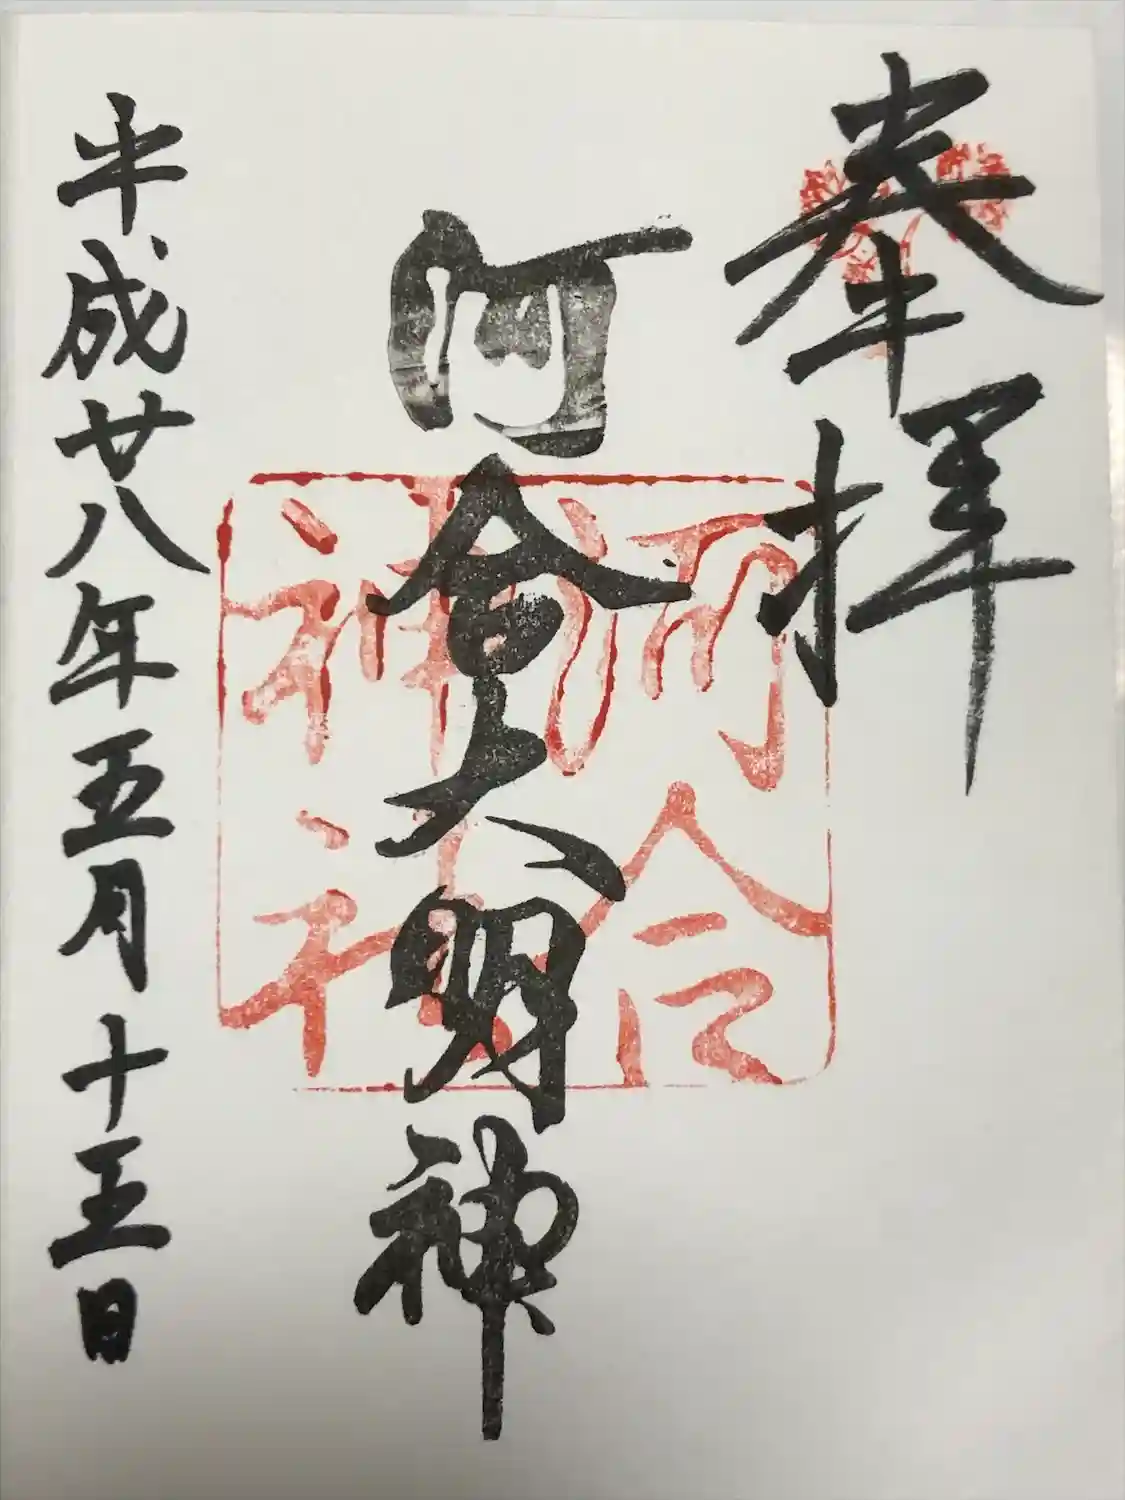 奉拝
河會大明神
河合
神社
平成廿八年五月十五日